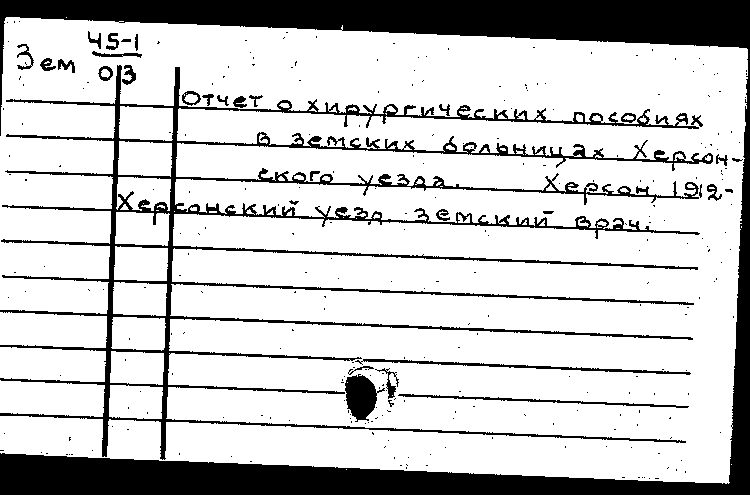 Зем 45-1
03
Отчет о хирургических пособиях
в земских больницах Херсон-
ского уезда. Херсон, 1912-
Херсонский уезд. Земский врач.